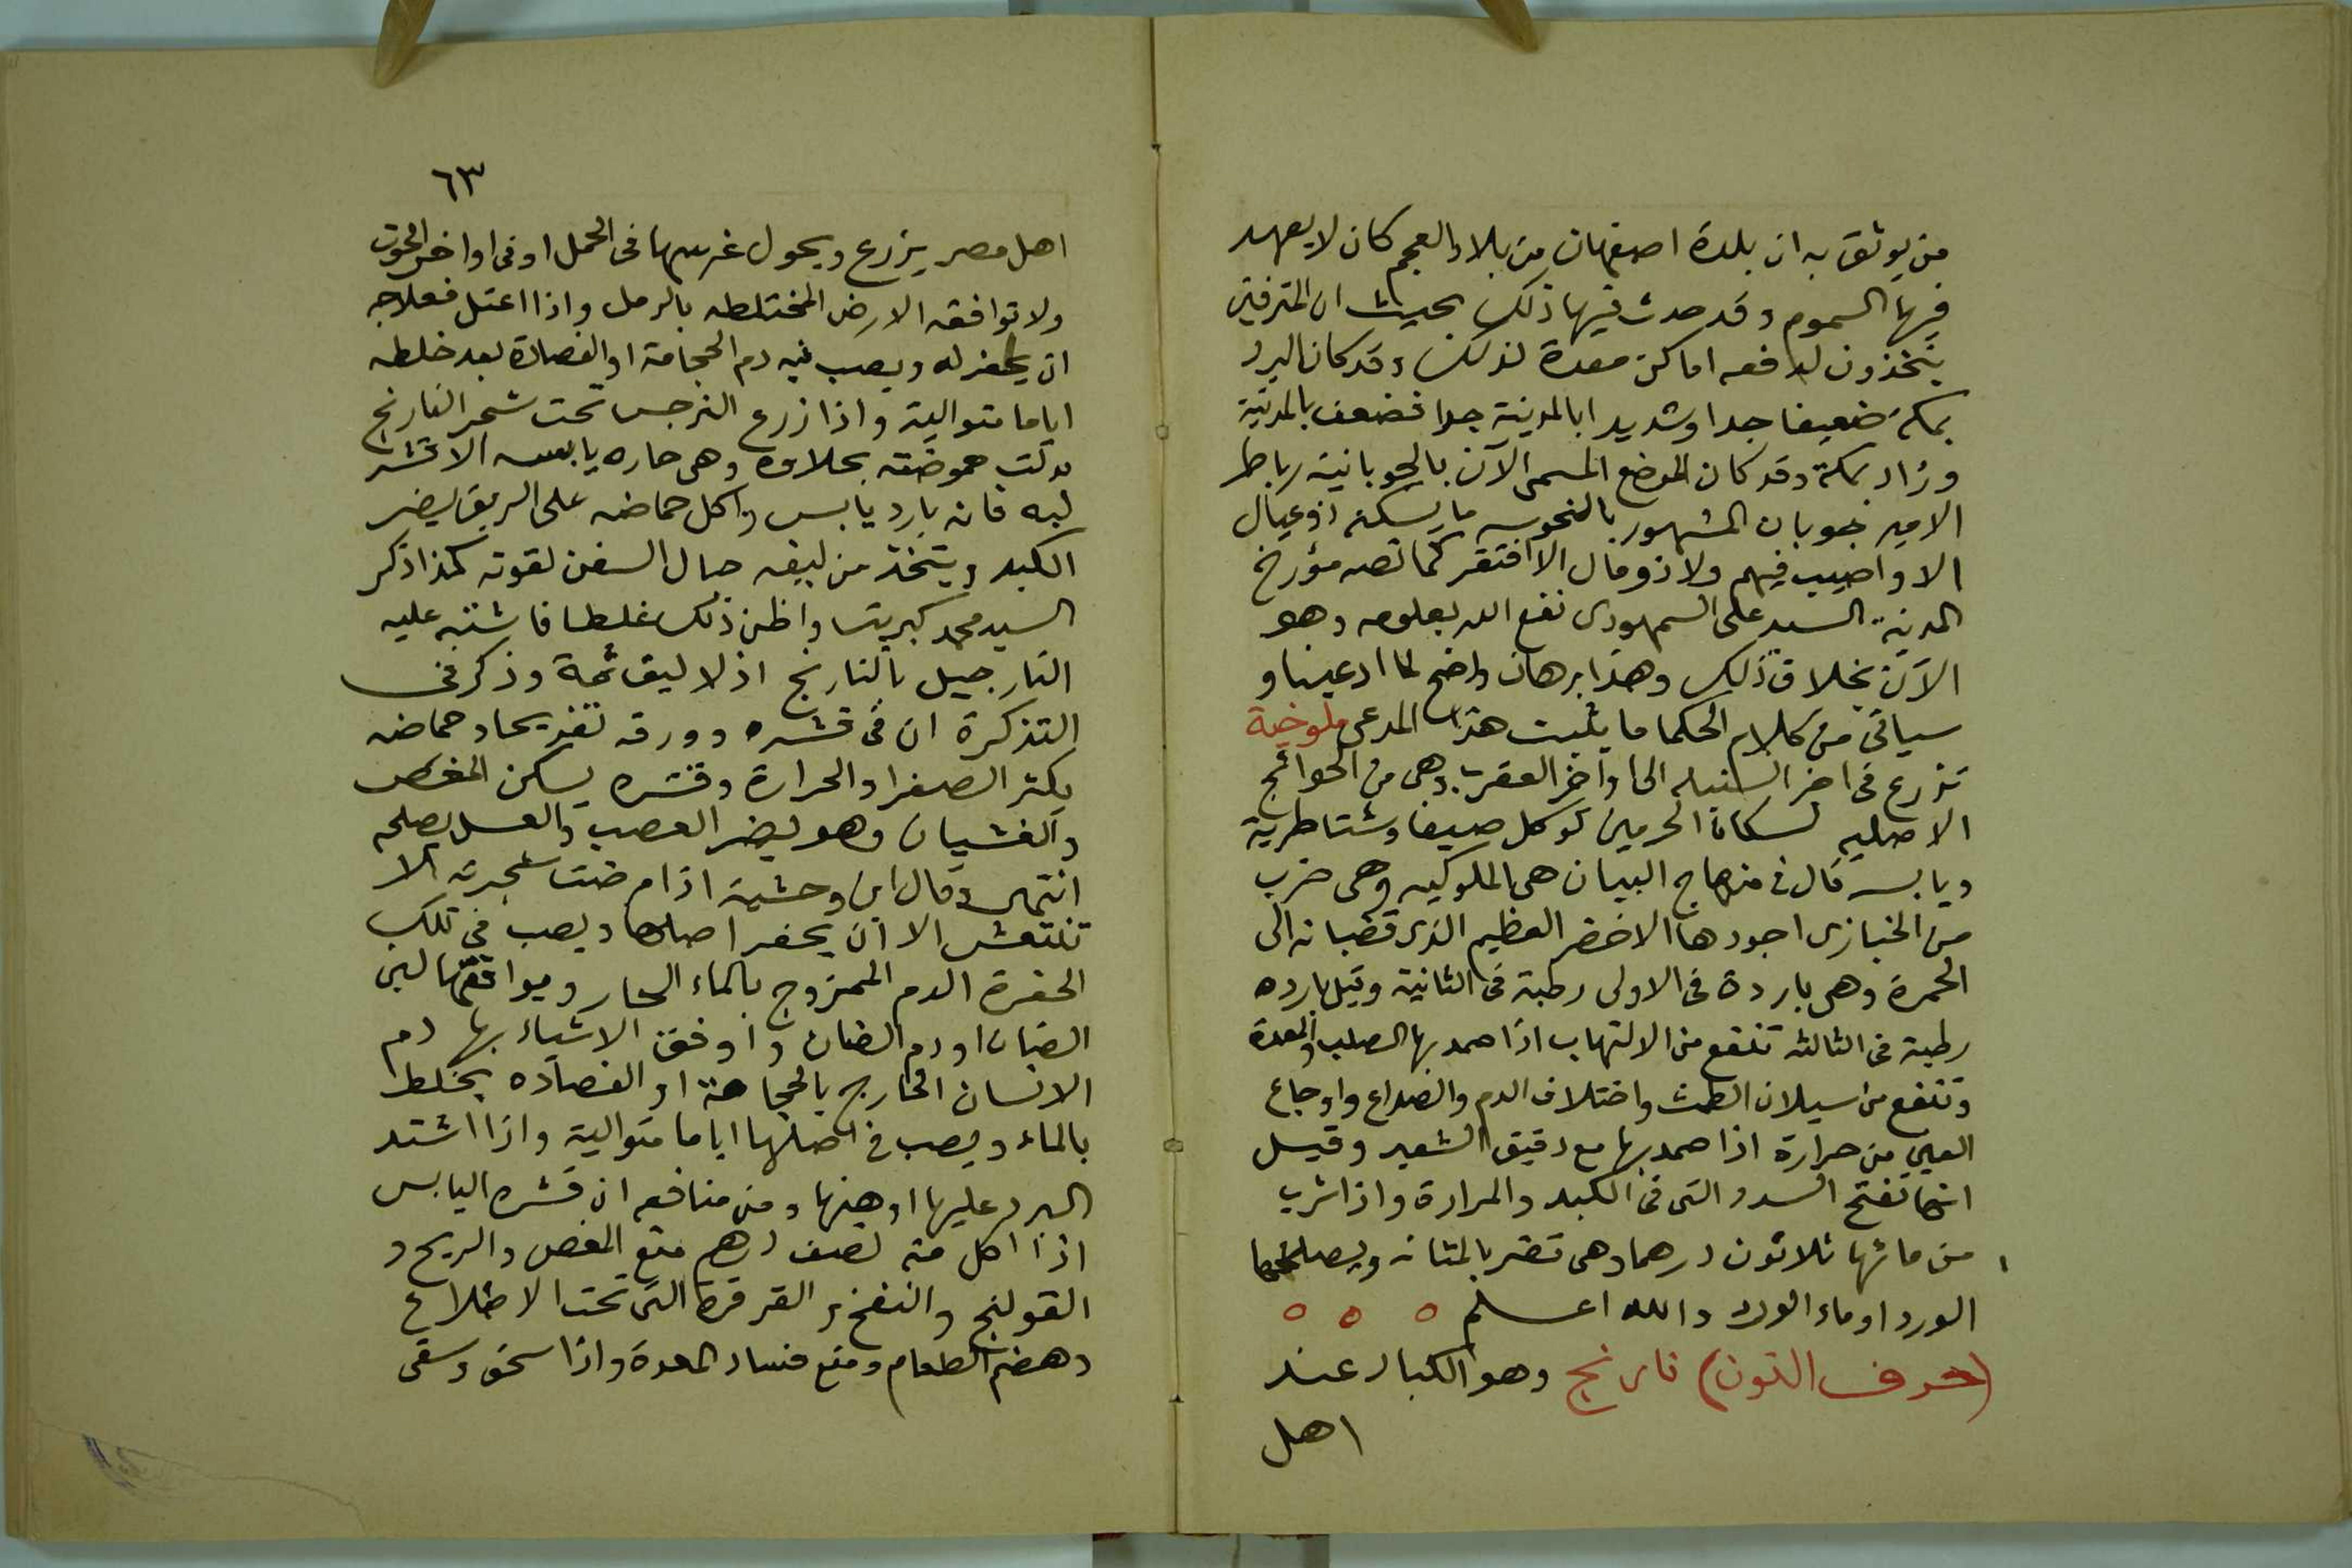 من يوثق به ان بلدة اصفهان من بلاد العجم كان لا يعهد
فيها السموم وقد حدث فيها ذلك بحيث ان المترفين
يتخذون لدفعه اماكن معدة لذلك وقد كان البرد
بمكة ضعيفا جدا وشديدا بالمدينة جدا فضعف بالمدينة
وزاد بمكة وقد كان الموضع المسمى الآن بالجوبانية رباط
الامير جوبان المشهور بالنحوسه ما يسكنه ذو عيال
الا واصيب فيهم ولا ذو مال الا افتقر كما نصه مؤرخ
المدينة السيد على السمهودى نفع الله بعلومه وهو
الآن بخلاف ذلك وهذا برهان واضح لما ادعينا و
سياتى من كلام الحكما ما يثبت هذا المدعى ملوخية
تزرع فى اخر السنبله الى اواخر العقرب وهى من الحوائج
الاصليه لسكان الحرمين توكل صيفا وشتا طرية
ويابسه قال فى منهاج البيان هى الملوكيه وهى ضرب
من الخبازى اجودها الاخضر العظيم الذى قضبانه الى
الحمرة وهى باردة فى الاولى رطبة فى الثانية وقيل بارده
رطبة فى الثالثه تنفع من الالتهاب اذا ضمد بها الصلب والمعدة
وتنفع من سيلان الطمث واختلاف الدم والصداع واوجاع
العين من حرارة اذا ضمد بها مع دقيق الشعير وقيل
انها تفتح السدد التى فى الكبد والمرارة واذا شرب
من مائها ثلاثون درهما وهى تضر بالمثانه ويصلحها
الورد او ماء الورد والله اعلم ه ه ه
(حرف النون) نارنج وهو الكباد عند
اهل
٦٣
اهل مصر يزرع ويحول غرسها فى الحمل او فى اواخر الحوت
ولا توافقه الارض المختلطه بالرمل واذا اعتل فعلاجه
ان يحفر له ويصب فيه دم الحجامة او الفصادة بعد خلطه
اياما متوالية واذا زرع النرجس تحت شجر النارنج
بدلت حموضته بحلاوه وهى حاره يابسه الا قشر
لبه فانه بارد يابس واكل حماضه على الريق يضر
الكبد ويتخذ من ليفه حبال السفن لقوته كذا ذكر
السيد محمد كبريت واظن ذلك غلطا فاشتبه عليه
النارجيل بالنارنج اذ لا ليف ثمة وذكر فى
التذكرة ان فى قشره وورقه تفريحا وحماضه
يكثر الصفرا والحرارة وقشره يسكن المغص
والغشيان وهو يضر العصب والعسل يصلحه
انتهى وقال ابن وحشية اذا مرضت شجرته الا
تنتعش الا ان يحفر اصلها ويصب فى تلك
الحفرة الدم الممزوج بالماء الحار ويوافقها لبن
الضان او دم الضان واوفق الاشياء بها دم
الانسان الخارج بالحجامة او الفصاده يخلط
بالماء ويصب فى اصلها اياما متوالية واذا اشتد
البرد عليها اوهنها ومن منافعه ان قشره اليابس
اذا اكل منه نصف درهم منع المغص والريح و
القولنج والنفخ و القرقرة التى تحت الاضلاع
وهضم الطعام ومنع فساد المعدة واذا سحق وسقى